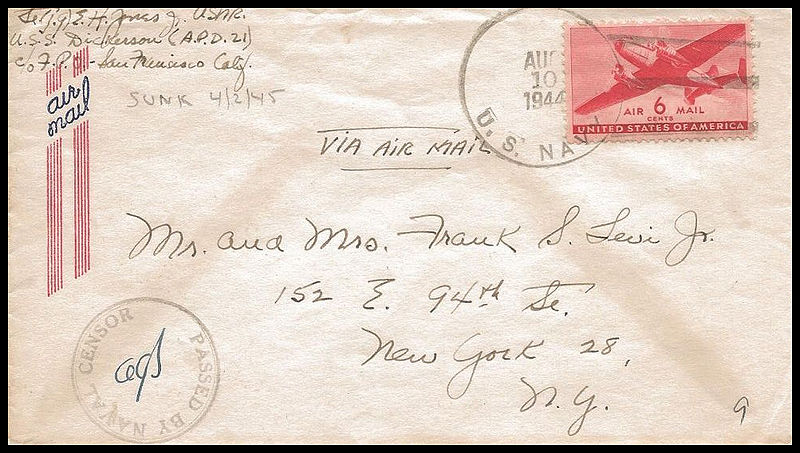 Lt (jg) E. H. Jones Jr. USNR.
U.S.S. Dickerson (A.P.D. 21)
c/o F.P.O. - San Francisco Calif.
SUNK 4/2/45
air
mail
AUG
10
1944
U. S. NAVY
AIR 6 MAIL
CENTS
UNITED STATES OF AMERICA
VIA AIR MAIL
Mr. and Mrs. Frank S. Levi Jr.
152 E. 94th St.
New York 28,
N.Y.
PASSED BY NAVAL CENSOR
9